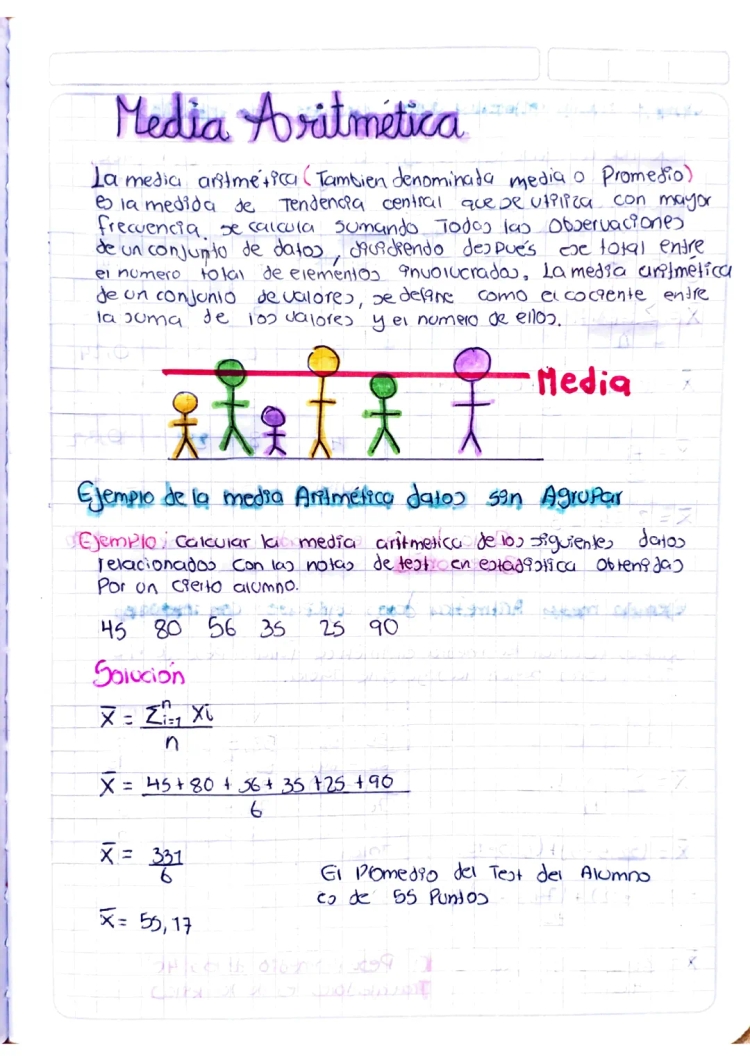 Media Aritmética
La media aritmética (Tambien denominada media o Promedio)
es la medida de Tendencia central que se utiliza con mayor
frecuencia. se calcula sumando Todas las Observaciones
de un conjunto de datos, dividiendo después ese total entre
el numero total de elementos involucrados. La media aritmética
de un conjunto de valores, se define como el cociente entre
la suma de los valores y el numero de ellos.
Media
Ejemplo de la media Aritmética datos sin Agrupar
Ejemplo: Calcular la media aritmetica de los siguientes datos
relacionados con las notas de test en estadistica Obtenidas
Por un cierto alumno.
45 80 56 35 25 90
Solución
X̄ = Σⁿi=1 Xi
n
X̄ = 45 + 80 + 56 + 35 + 25 + 90
6
X̄ = 331
6
El Promedio del Test del Alumno
es de 55 Puntos
X̄ = 55,17